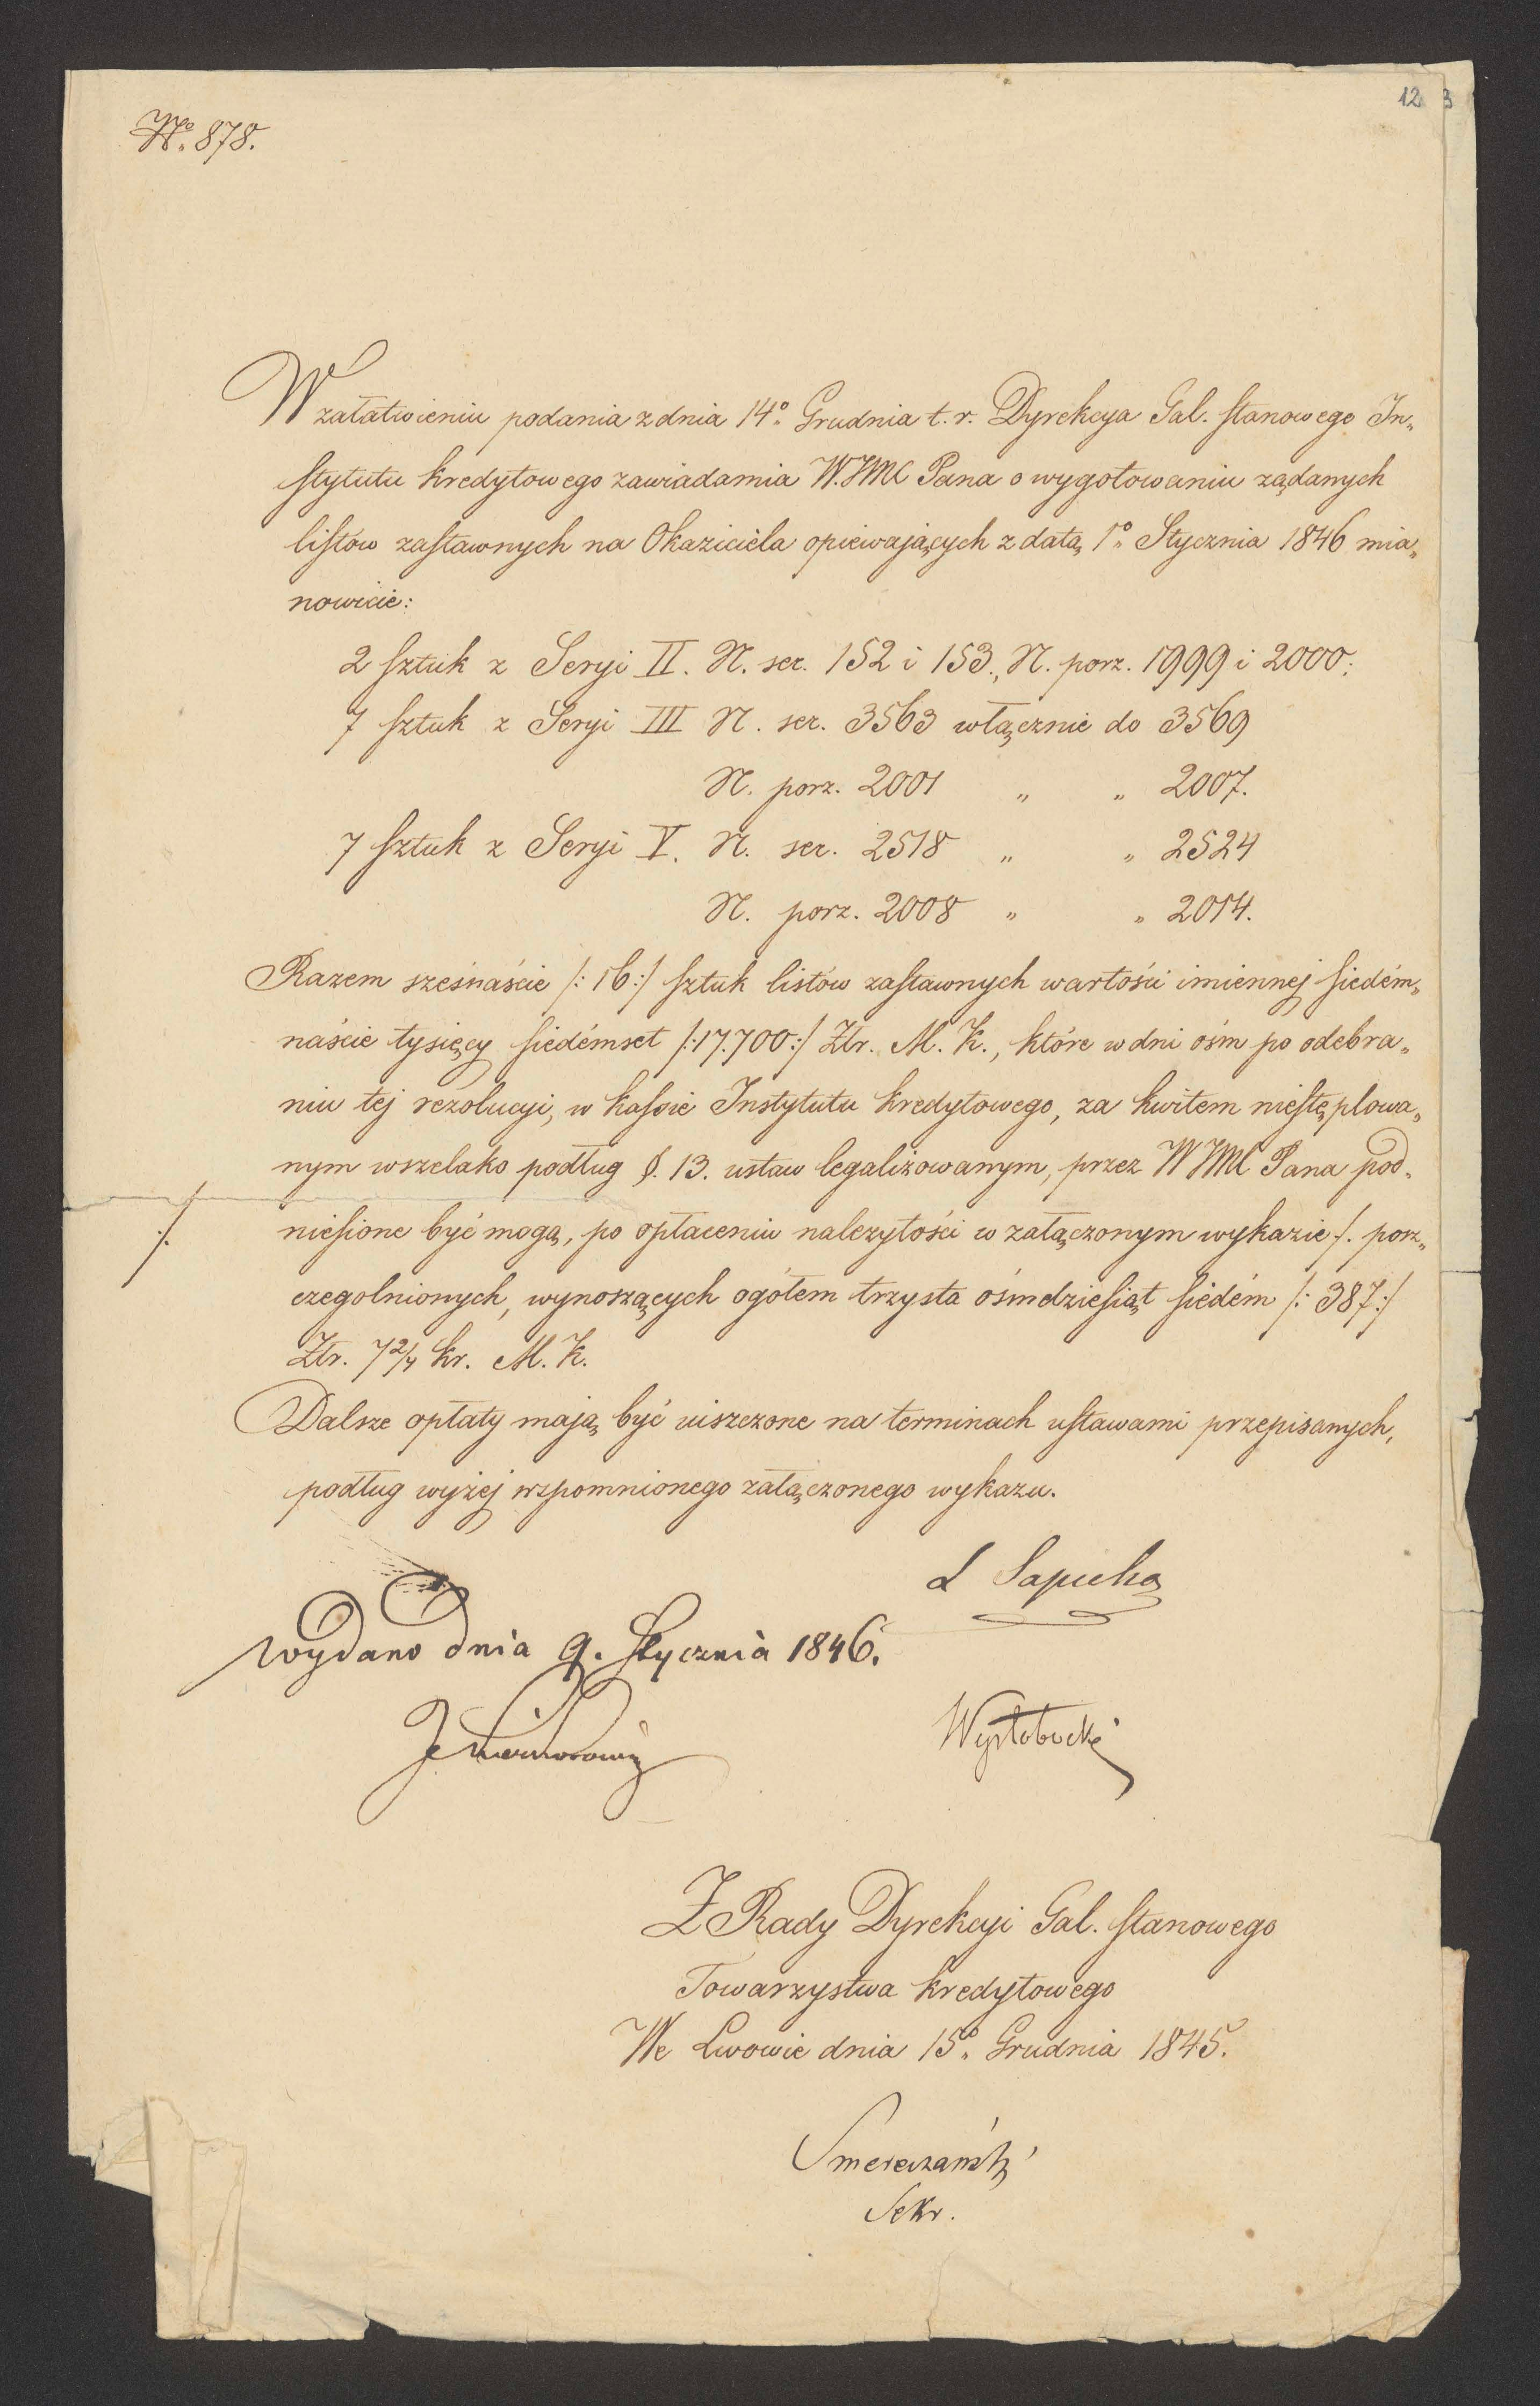 12 3
No. 878.
W załatwieniu podania z dnia 14o Grudnia t. r. Dyrekcya Gal. stanowego In„
stytutu kredytowego zawiadamia W. JMC Pana o wygotowaniu ządanych
listów zastawnych na Okaziciela opiewających z datą 1o Stycznia 1846 mia„
nowicie:
2 sztuk z Seryi II. N. ser. 152 i 153., N. porz. 1999 i 2000:
7 sztuk z Seryi III N. ser. 3563 włącznie do 3569
N. porz. 2001 „ „ 2007.
7 sztuk z Seryi V. N. ser. 2518 „ „ 2524
N. porz. 2008 „ „ 2014.
Razem szesnaście /: 16 :/ sztuk listów zastawnych wartości imiennej siedém„
naście tysięcy siedémset /: 17.700 :/ Złr. M. K., które w dni ośm po odebra„
niu tej rezolucyi, w kassie Instytutu kredytowego, za kwitem niestęplowa„
nym wszelako podług §. 13. ustaw legalizowanym, przez W JMC Pana pod„
./. niesione być mogą, po opłaceniu nalezytości w załączonym wykazie ./. porz„
czegolnionych, wynoszących ogółem trzysta ośmdziesiąt siedém /: 387 :/
Złr. 7 2/4 kr. M. K.
Dalsze opłaty mają być uiszczone na terminach ustawami przepisanych,
podług wyżej wspomnionego załączonego wykazu.
L Sapieha
Wydano dnia 9. Stycznia 1846.
Wysłobocki
Z Rady Dyrekcyi Gal. stanowego
Towarzystwa kredytowego
We Lwowie dnia 15o Grudnia 1845.
Smereczański
Sekr.